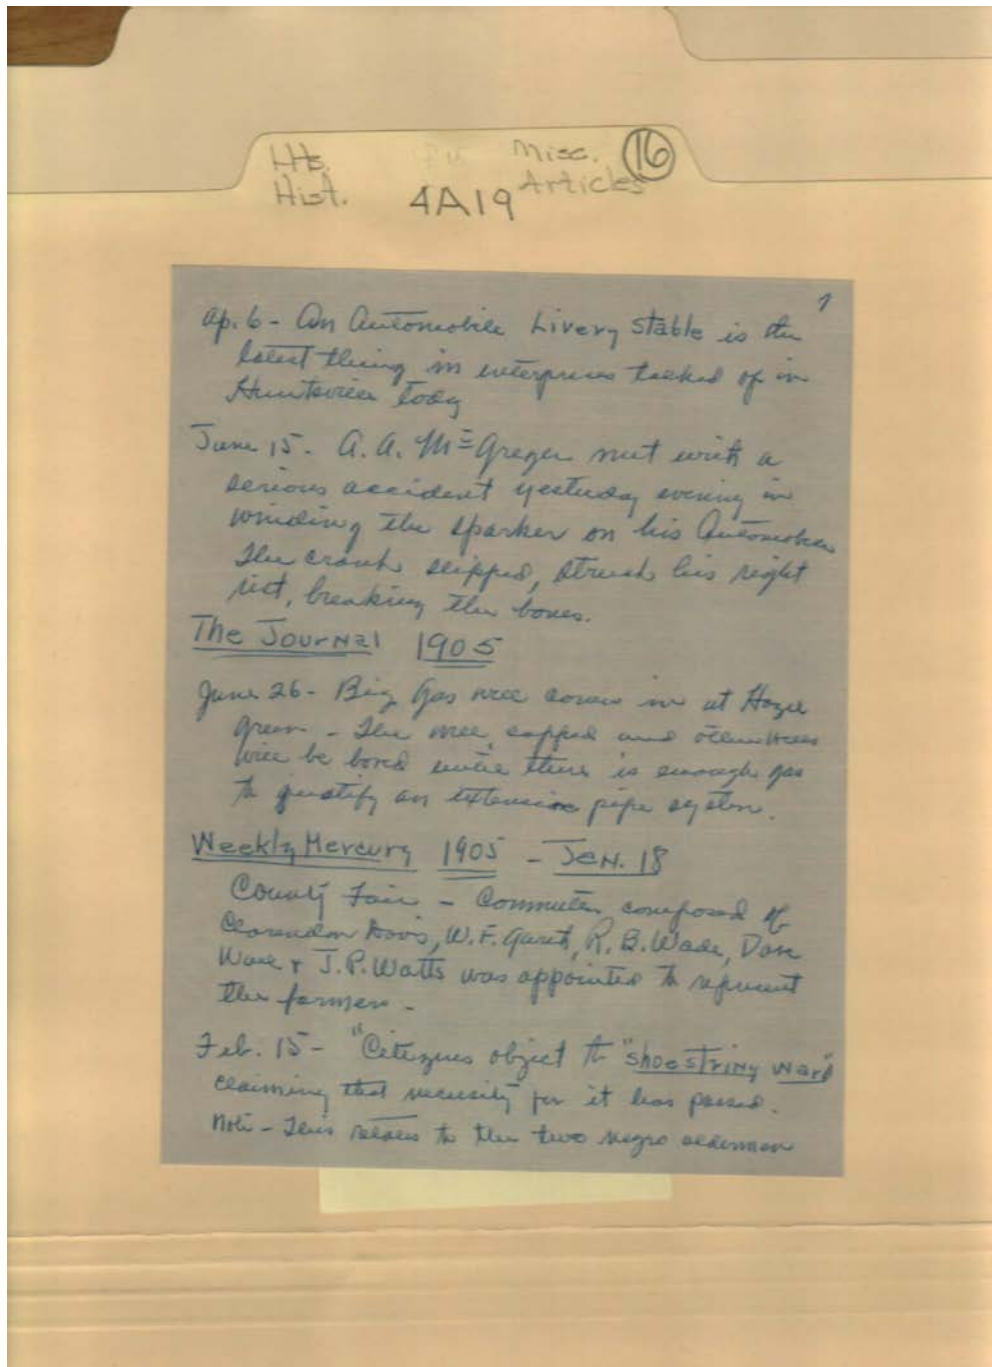 Hts. Misc. 16
Hist. 4A19 Articles
1
Ap. 6 - An Automobile Livery Stable is the
latest thing in enterprises talked of in
Huntsville today
June 15 - A. A. McGregor met with a
serious accident yesterday evening in
winding the sparker on his Automobile
The crank slipped, struck his right
rist, breaking the bones.
The Journal 1905
June 26 - Big Gas well comes in at Hazel
Green - The well capped and other wells
will be bored until there is enough gas
to justify an extensive pipe system.
Weekly Mercury 1905 - Jan. 18
County Fair - Committee composed of
Clarendon Davis, W. F. Garth, R. B. Wade, Dave
& J. P. Watts was appointed to represent
the farmers -
Feb. 15 - "Citizens object to "shoestring ward"
claiming that necessity for it has passed.
Note - This relates to the two negro aldermen